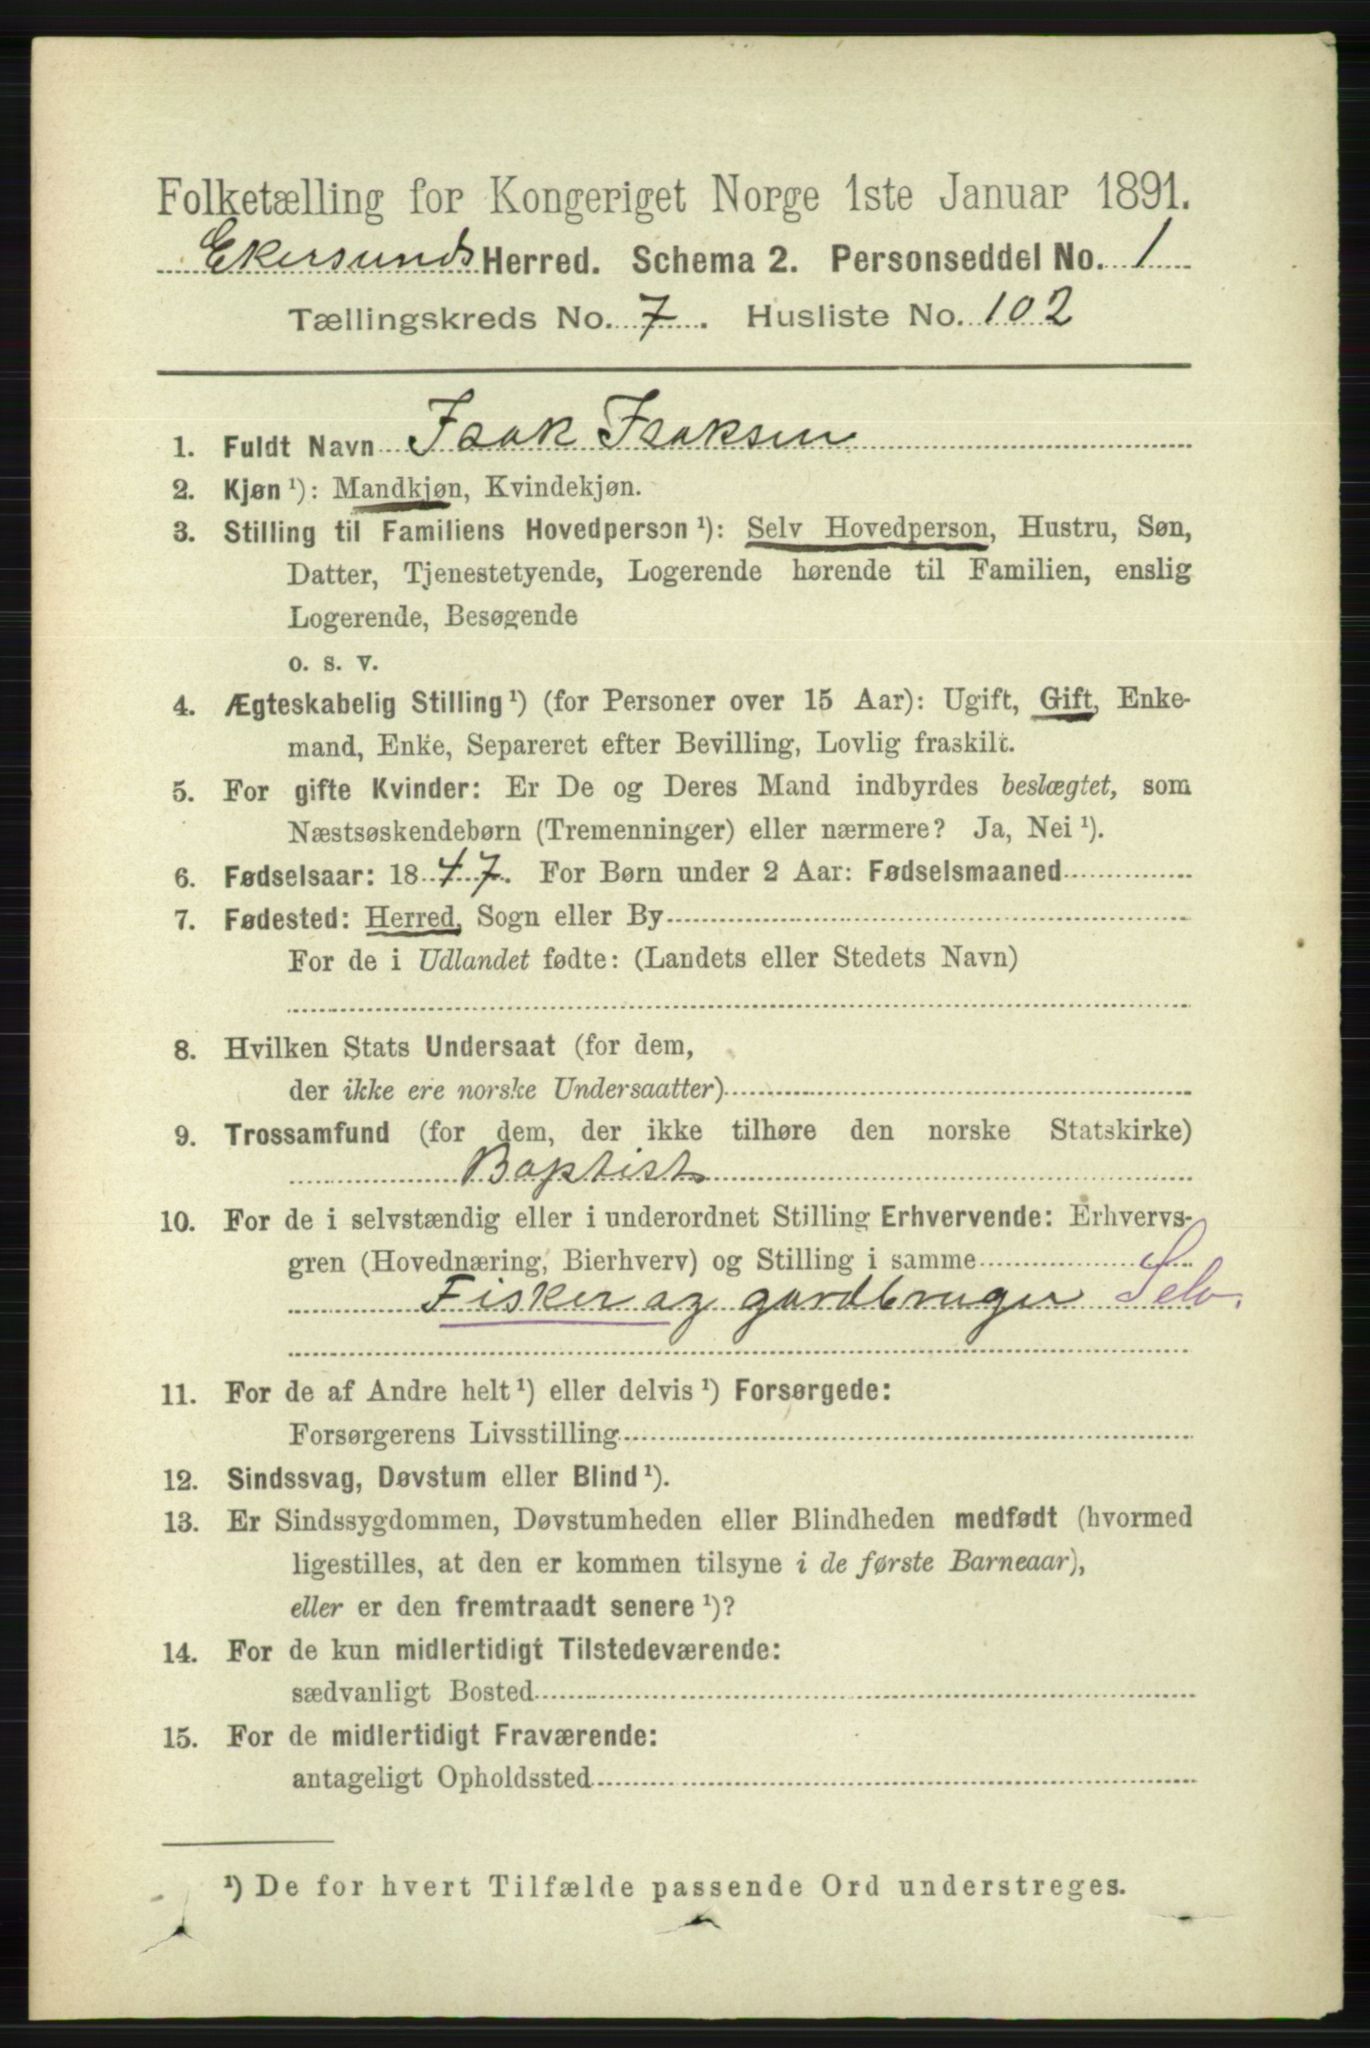 Folketælling for Kongeriget Norge 1ste Januar 1891.
Ekersunds Herred. Schema 2. Personseddel No. 1
Tællingskreds No. 7. Husliste No. 102
1. Fuldt Navn Isak Isaksen
2. Kjøn ¹): Mandkjøn, Kvindekjøn.
3. Stilling til Familiens Hovedperson ¹): Selv Hovedperson, Hustru, Søn,
Datter, Tjenestetyende, Logerende hørende til Familien, enslig
Logerende, Besøgende
o. s. v.
4. Ægteskabelig Stilling ¹) (for Personer over 15 Aar): Ugift, Gift, Enke-
mand, Enke, Separeret efter Bevilling, Lovlig fraskilt.
5. For gifte Kvinder: Er De og Deres Mand indbyrdes beslægtet, som
Næstsøskendebørn (Tremenninger) eller nærmere? Ja, Nei ¹).
6. Fødselsaar: 1847. For Børn under 2 Aar: Fødselsmaaned
7. Fødested: Herred, Sogn eller By
For de i Udlandet fødte: (Landets eller Stedets Navn)
8. Hvilken Stats Undersaat (for dem,
der ikke ere norske Undersaatter)
9. Trossamfund (for dem, der ikke tilhøre den norske Statskirke)
Baptist
10. For de i selvstændig eller i underordnet Stilling Erhvervende: Erhvervs-
gren (Hovednæring, Bierhverv) og Stilling i samme
Fisker og gardbruger Selv.
11. For de af Andre helt ¹) eller delvis ¹) Forsørgede:
Forsørgerens Livsstilling
12. Sindssvag, Døvstum eller Blind ¹).
13. Er Sindssygdommen, Døvstumheden eller Blindheden medfødt (hvormed
ligestilles, at den er kommen tilsyne i de første Barneaar),
eller er den fremtraadt senere ¹)?
14. For de kun midlertidigt Tilstedeværende:
sædvanligt Bosted
15. For de midlertidigt Fraværende:
antageligt Opholdssted
¹) De for hvert Tilfælde passende Ord understreges.